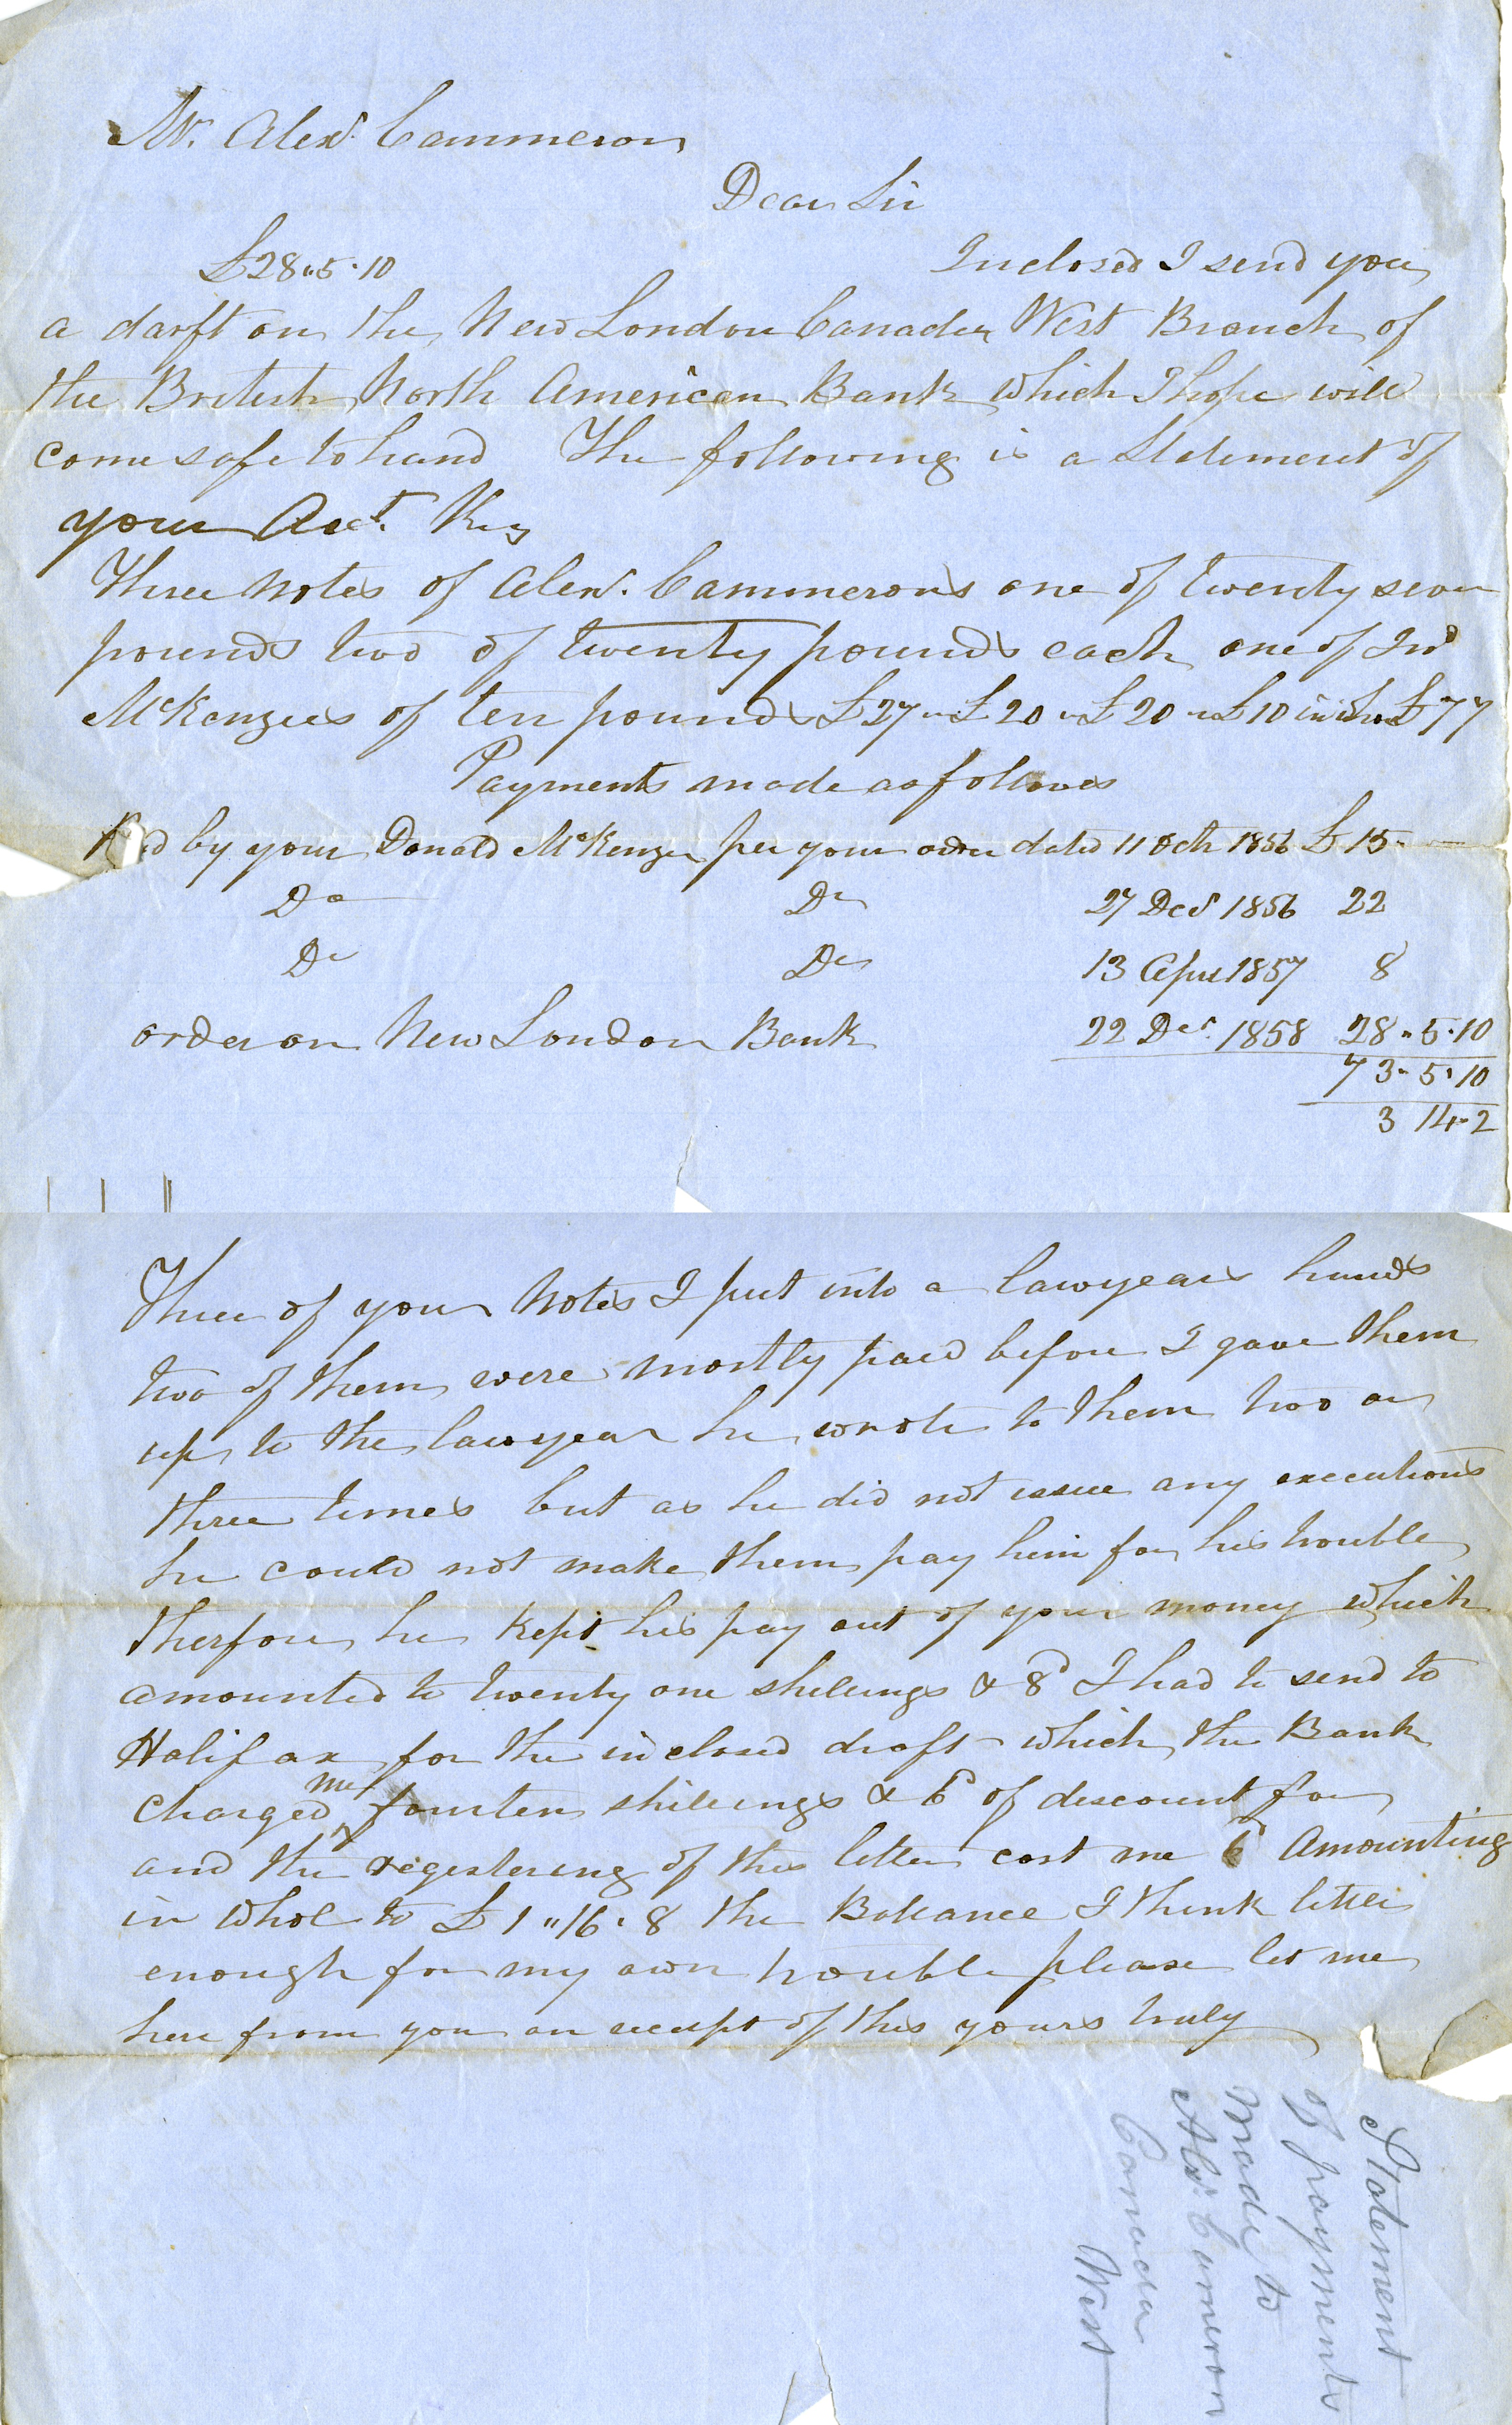 Mr. Alexr. Cammeron
Dear Sir
£28"5·10 Inclosed I send you
a darft on the New London Canada West Branch of
the British North American Bank which I hope will
come safe to hand The following is a Statement of
your Acct.
Three Notes of Alexr. Cammerons one of twenty seven
pounds two of twenty pounds each one of Jno
McKenzies of ten pounds £27 " £20 " £20 " £10 in whol £77
Payments made as follows
Recd by your Donald McKenzie per your order dated 11 Octr 1856 £15"
Do Do 27 Decr 1856 22
Do Do 13 Apri 1857 8
order on New London Bank 22 Decr. 1858 28"5·10
73"5·10
3 14"2
Three of your Notes I put into a lawyears hands
two of them were mostly paid before I gave them
up to the lawyear he wrote to them two or
three times but as he did not issue any executions
he could not make them pay him for his trouble
therfore he kept his pay out of your money which
amounted to twenty one shillings & 8d I had to send to
Halifax for the inclosed draft which the Bank
charged me fourten shillings & 6d of discount for
and the registering of this letter cost me 6d Amounting
in whol to £1"16"8 the Ballance I think little
enough for my own trouble please let me
here from you on receipt of this yours truly
Statement
of payments
made to
Alexr Cameron
Canada
West